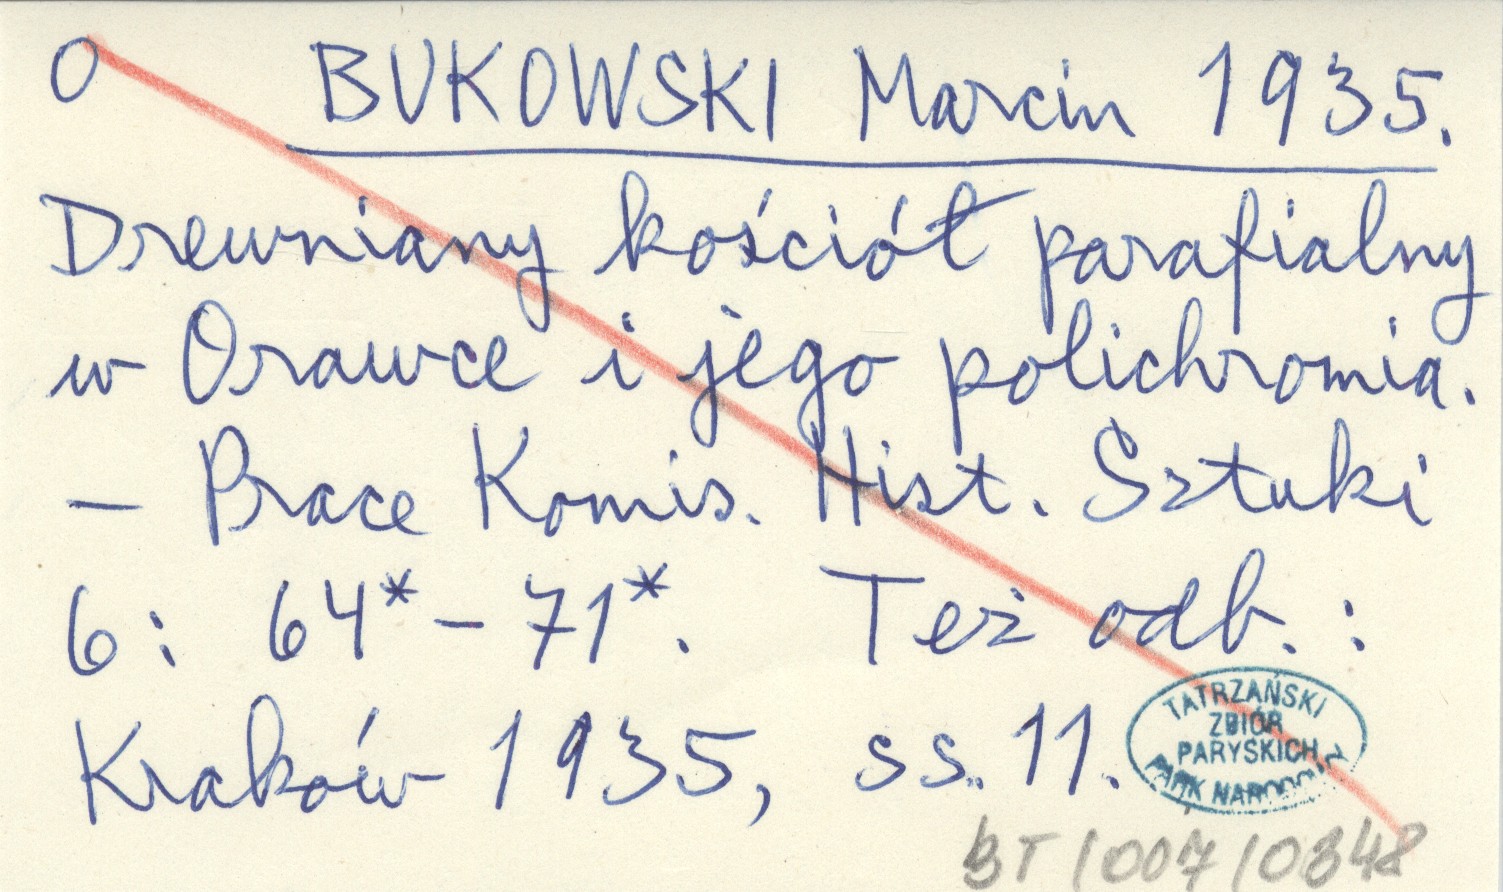 O BUKOWSKI Marcin 1935.
Drewniany kościół parafialny
w Orawce i jego polichromia.
— Prace Komis. Hist. Sztuki
6: 64*–71*. Też odb.:
Kraków 1935, ss. 11.
TATRZAŃSKI
ZBIÓR
PARYSKICH
PARK NARODOWY
BT/007/0348